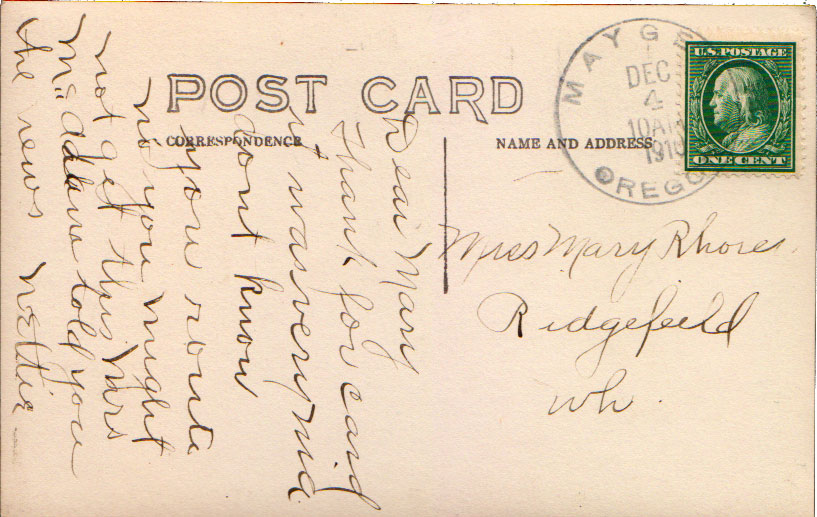 POST CARD
CORRESPONDENCE
NAME AND ADDRESS
MAYGE
DEC
4
10AM
1910
OREGO
U.S. POSTAGE
ONE CENT
Miss Mary Rhores
Ridgefield
Wh.
Dear Mary
Thank for card
it was very
dont know
your route
no you might
not get this Mrs
told you
the news Nettie